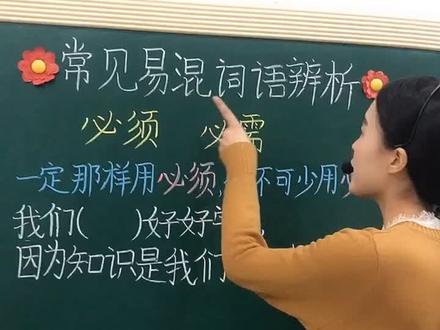 常见易混词语辨析
必须 必需
一定那样用必须,不可少用
我们( )好好学
因为知识是我们